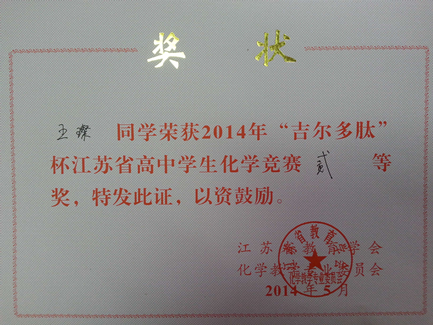 奖 状
王璨 同学荣获2014年“吉尔多肽”
杯江苏省高中学生化学竞赛 贰 等
奖，特发此证，以资鼓励。
江苏省教育学会
化学教学专业委员会
2014年5月
化学教学专业委员会